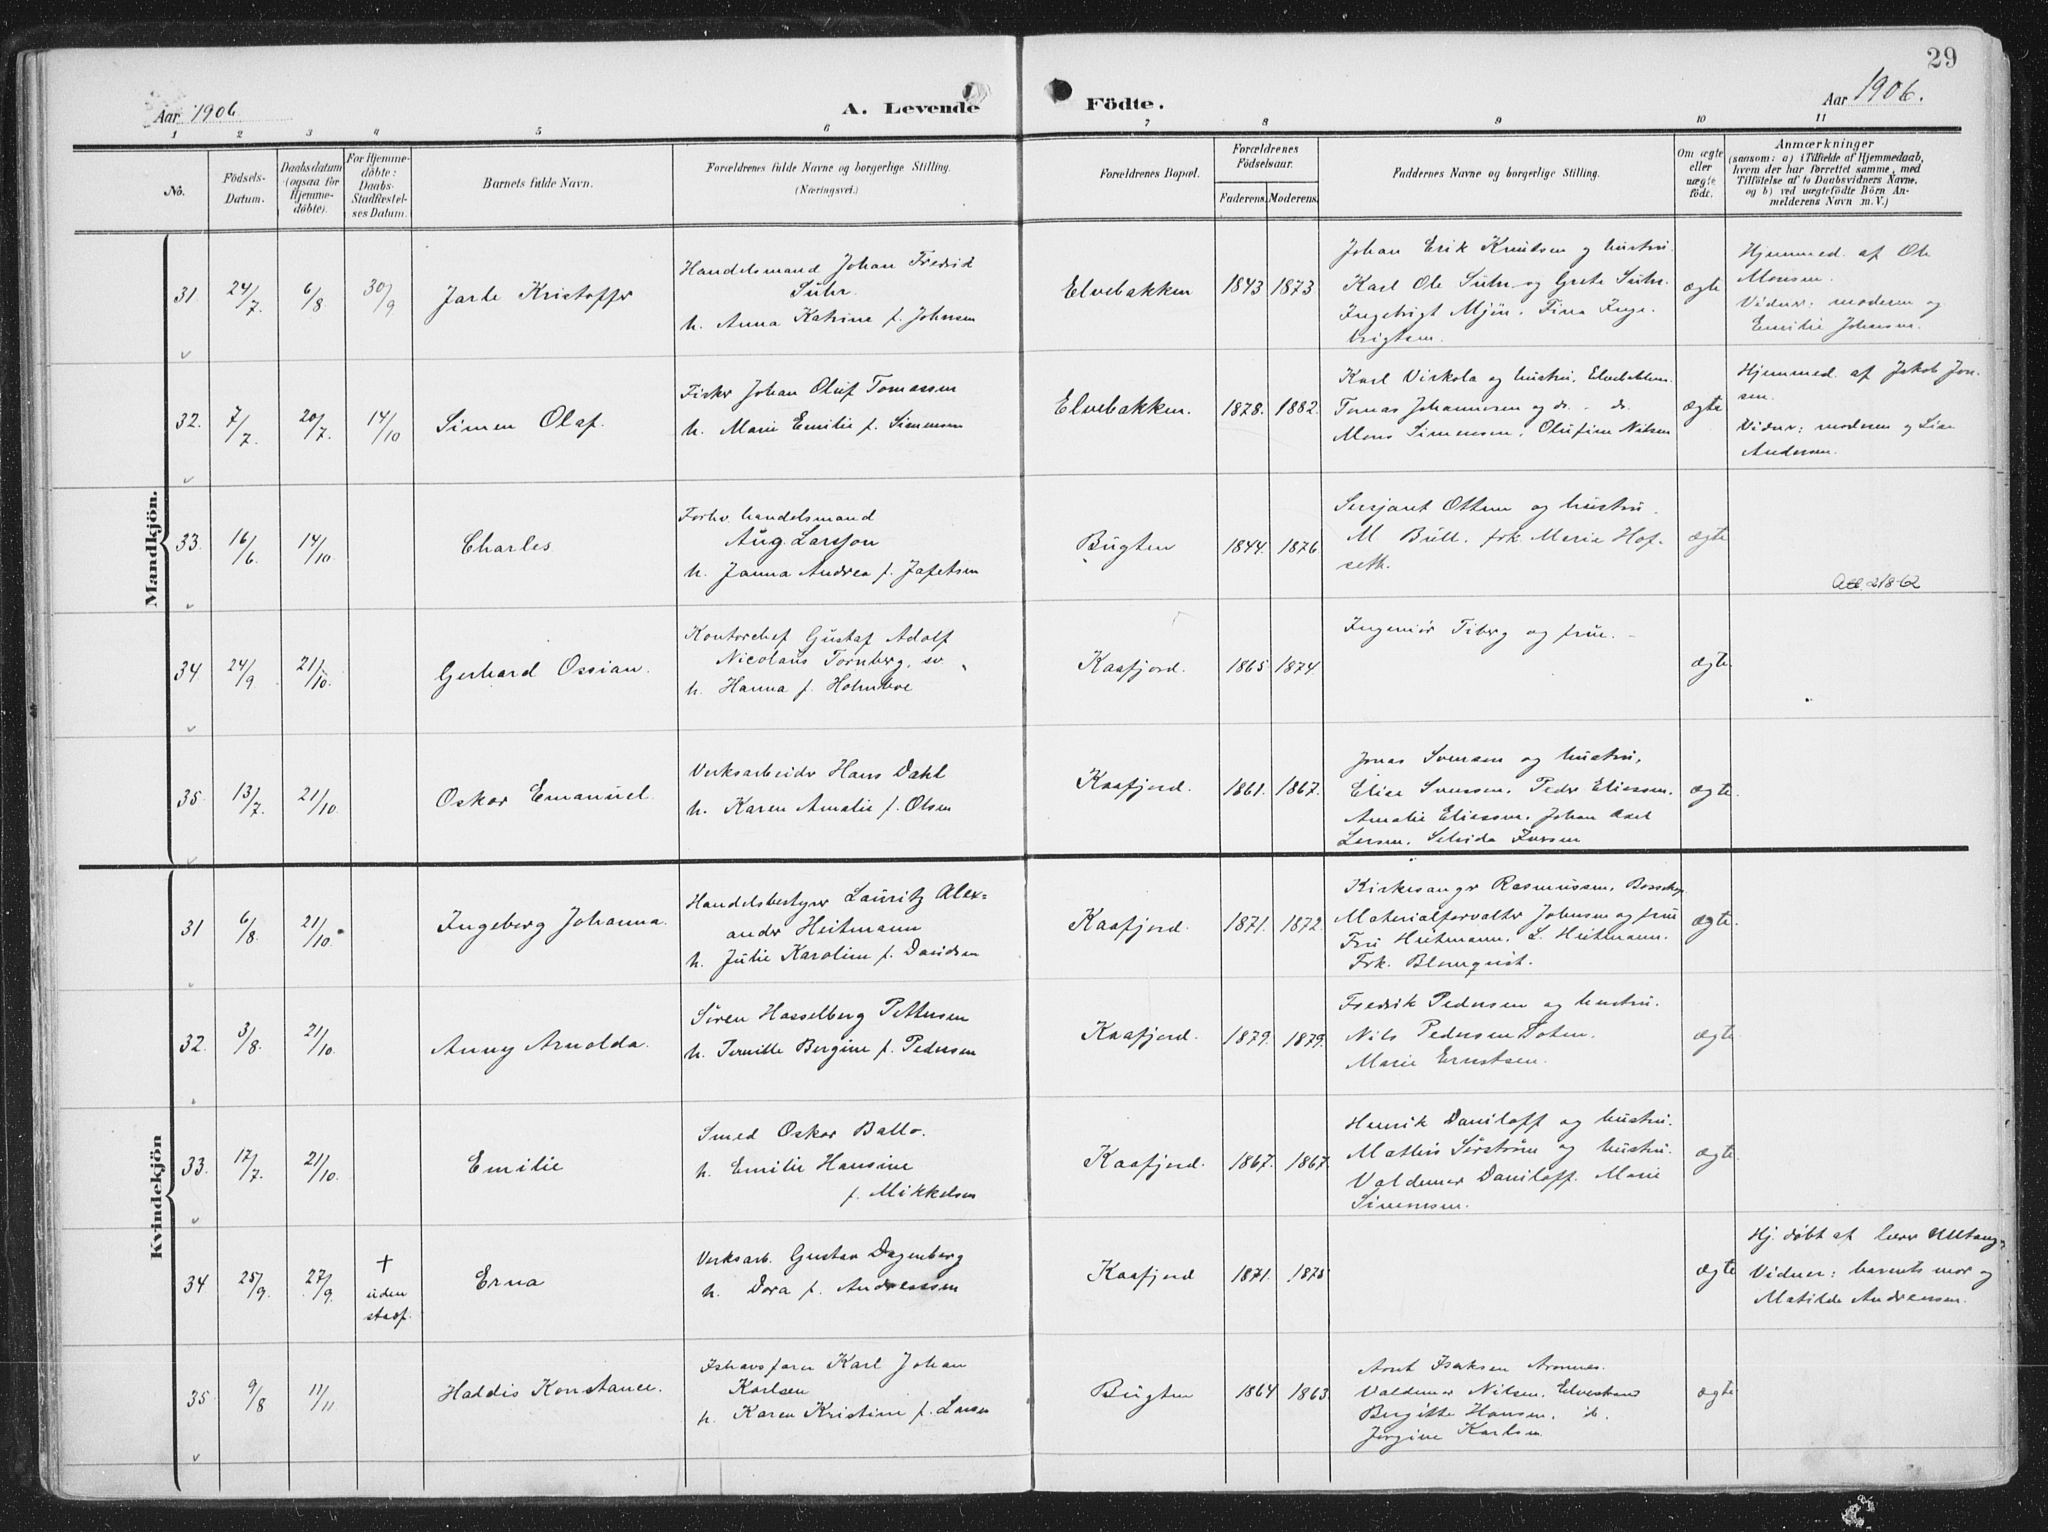 29
Aar 1906.
A. Levende
Födte.
Aar 1906.
1 2 3 4 5 6 7 8 9 10 11
No.
Födsels-
Datum.
Daabsdatum
(ogsaa for
Hjemme-
döbte).
For Hjemme-
döbte:
Daabs-
Stadfæstel-
ses Datum.
Barnets fulde Navn.
Forældrenes fulde Navne og borgerlige Stilling.
(Næringsvei.)
Forældrenes Bopæl.
Forældrenes
Födselsaar.
Faderens. Moderens.
Faddernes Navne og borgerlige Stilling.
Om ægte
eller
uægte
födt.
Anmærkninger
(saasom: a) i Tilfælde af Hjemmedaab,
hvem der har forrettet samme, med
Tilföielse af to Daabsvidners Navne,
og b) ved uægtefödte Börn An-
melderens Navn m. V.)
Mandkjön.
31. 24/7. 6/8 30/9 Jarle Kristoffer
Handelsmand Johan Fredrik
Suhr.
h. Anna Katrine f. Johnsen
Elvebakken 1843 1873
Johan Erik Knutsen og hustru.
Karl Ole Suhr og Grete Suhr.
Ingebrigt Mjön. Tina Inge-
brigtsen.
ægte
Hjemmed. af Ole
Monsen.
Vidner: moderen og
Emilie Johansen.
32. 7/7. 20/7. 14/10 Simen Olaf.
Fisker Johan Oluf Tomassen
h. Marie Emilie f. Simensen
Elvebakken. 1878. 1882.
Karl Virkola og hustru, Elvebakken.
Tomas Johannesen og do. - do.
Mons Simensen. Olufine Nilsen
ægte
Hjemmed. af Jakob Jon-
sen.
Vidner: moderen og Lise
Andersen.
33. 16/6. 14/10 Charles
Forhv. handelsmand
Aug. Larsson
h. Janna Andrea f. Jafetsen
Bugten 1844. 1876.
Sersjant Ottem og hustru.
M. Bull. frk. Maria Hof-
seth.
ægte
Att. 21862
34 24/9 21/10. Gerhard Ossian.
Kontorchef Gustaf Adolf
Nicolaus Tornberg, sv.
h. Hanna f. Holmboe
Kaafjord. 1865 1874.
Ingeniör Tiberg og frue.
ægte
35. 13/7. 21/10. Oskar Emanuel.
Verksarbeider Hans Dahl
h. Karen Amalie f. Olsen
Kaafjord. 1861. 1867.
Jonas Svensen og hustru,
Elise Svensen. Peder Eliassen.
Amalie Eliassen. Johan Axel
Larsen.
ægte.
Kvindekjön
31 6/8. 21/10. Ingeborg Johanna.
Handelsbestyrer Lauritz Alex-
ander Heitmann
h. Julie Karoline f. Davidsen
Kaafjord. 1871. 1872.
Kirkesanger Rasmussen, Bossekop.
Materialforvalter Johnsen og frue
Fru Heitmann. L. Heitmann.
Frk. Blomquist.
ægte.
32. 3/8. 21/10. Anny Arnolda.
Sören Hasselberg Pettersen
h. Pernille Bergine f. Pedersen
Kaafjord. 1879. 1879.
Fredrik Pedersen og hustru.
Nils Pedersen Toten.
Marie Ernstsen.
ægte
33. 17/7. 21/10. Emilie
Smed Oskar Ballo.
h. Emilie Hansine
f. Mikkelsen
Kaafjord. 1867. 1867.
Henrik Daniloff og hustru.
Mathis Sörström og hustru.
Valdemar Daniloff. Marie
Simonsen.
ægte.
34 25/9. 27/9. † uden stadf. Erna
Verksarb. Gustav Dagenborg
h. Dora f. Andreassen
Kaafjord 1871. 1875
ægte
Hj. döbt af lærer Alltang.
Vidner: barnets mor og
Matilde Andreassen.
35. 9/8 11/11 Haddis Konstance.
Ishavsfarer Karl Johan
Karlsen
h. Karen Kristine f. Larsen
Bugten 1864 1863.
Arnt Isaksen Aronnes.
Valdemar Nilsen, Elvestrand
Birgitte Hansen. d.
Jörgine Karlsen
ægte